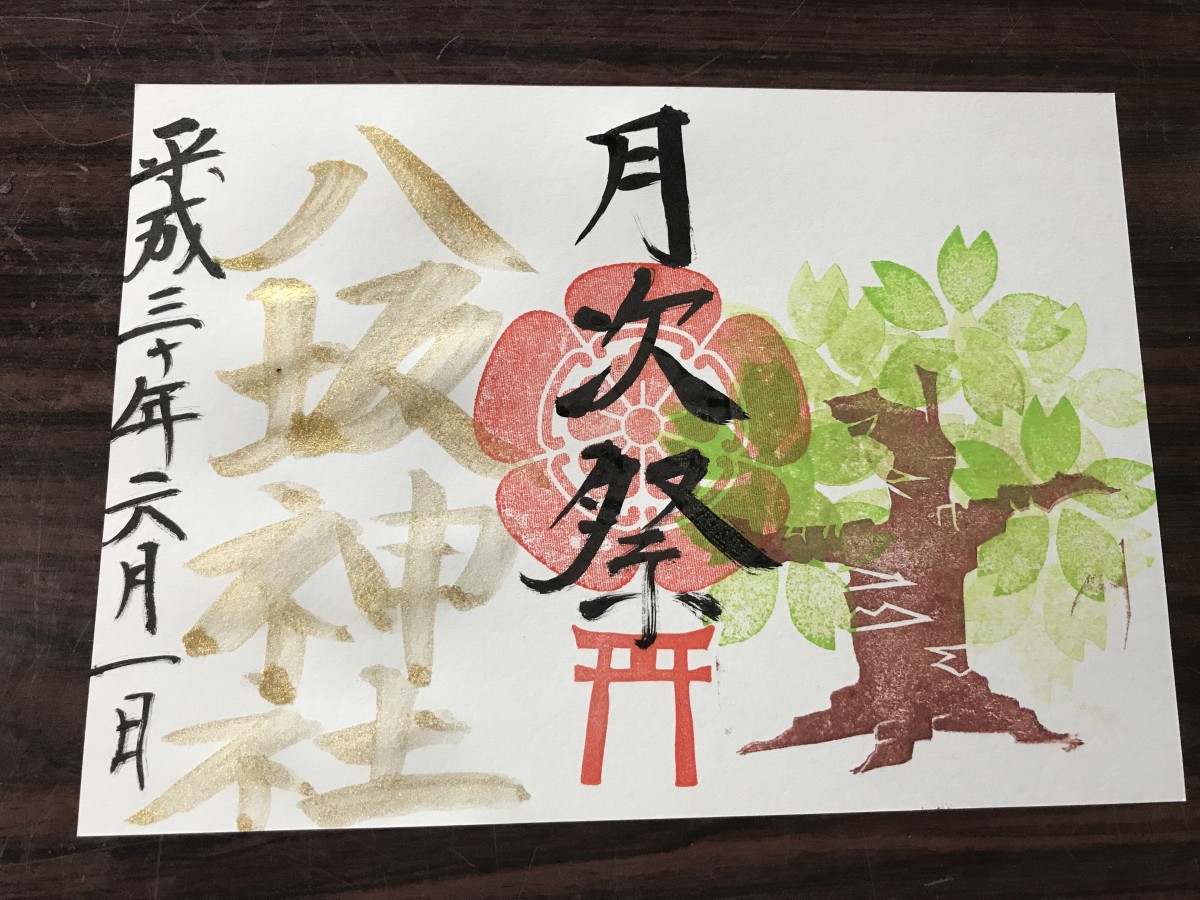 月次祭
八坂神社
平成三十年六月一日